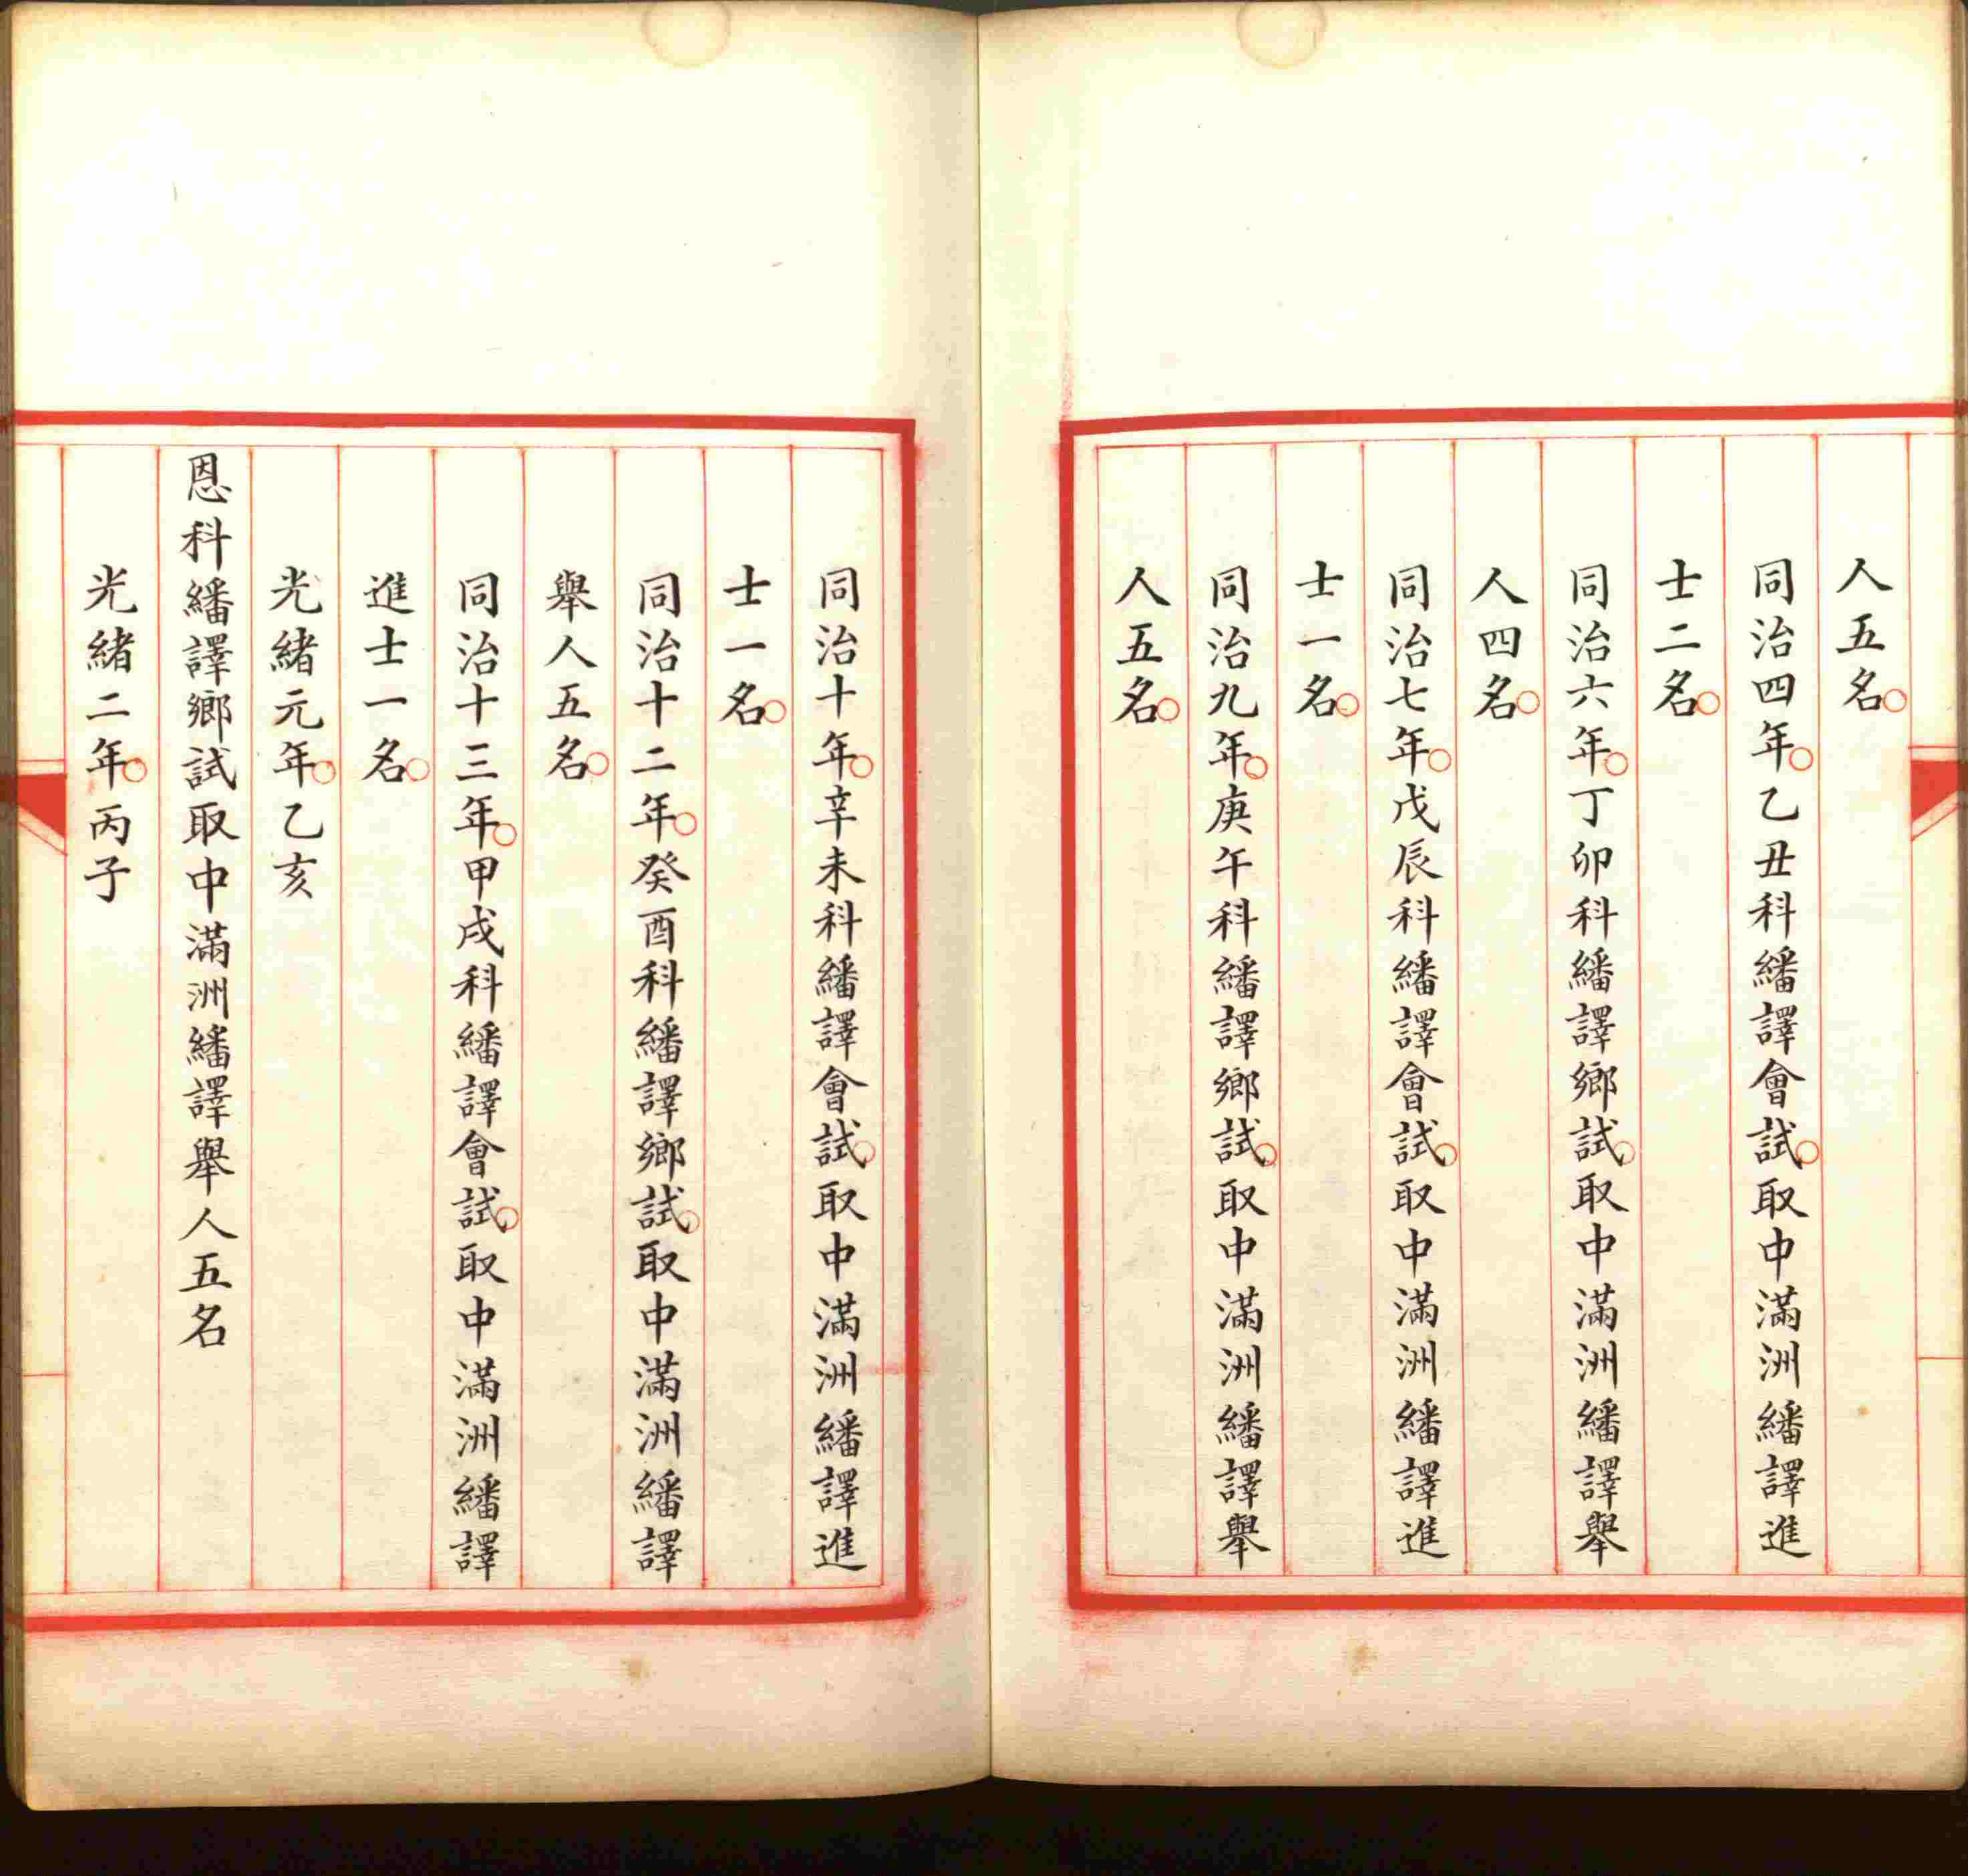 人五名○
同治四年○乙丑科繙譯會試○取中滿洲繙譯進
士二名○
同治六年○丁卯科繙譯鄉試○取中滿洲繙譯舉
人四名○
同治七年○戊辰科繙譯會試○取中滿洲繙譯進
士一名○
同治九年○庚午科繙譯鄉試○取中滿洲繙譯舉
人五名○
同治十年○辛未科繙譯會試○取中滿洲繙譯進
士一名○
同治十二年○癸酉科繙譯鄉試○取中滿洲繙譯
舉人五名○
同治十三年○甲戌科繙譯會試○取中滿洲繙譯
進士一名○
光緒元年○乙亥
恩科繙譯鄉試取中滿洲繙譯舉人五名
光緒二年○丙子